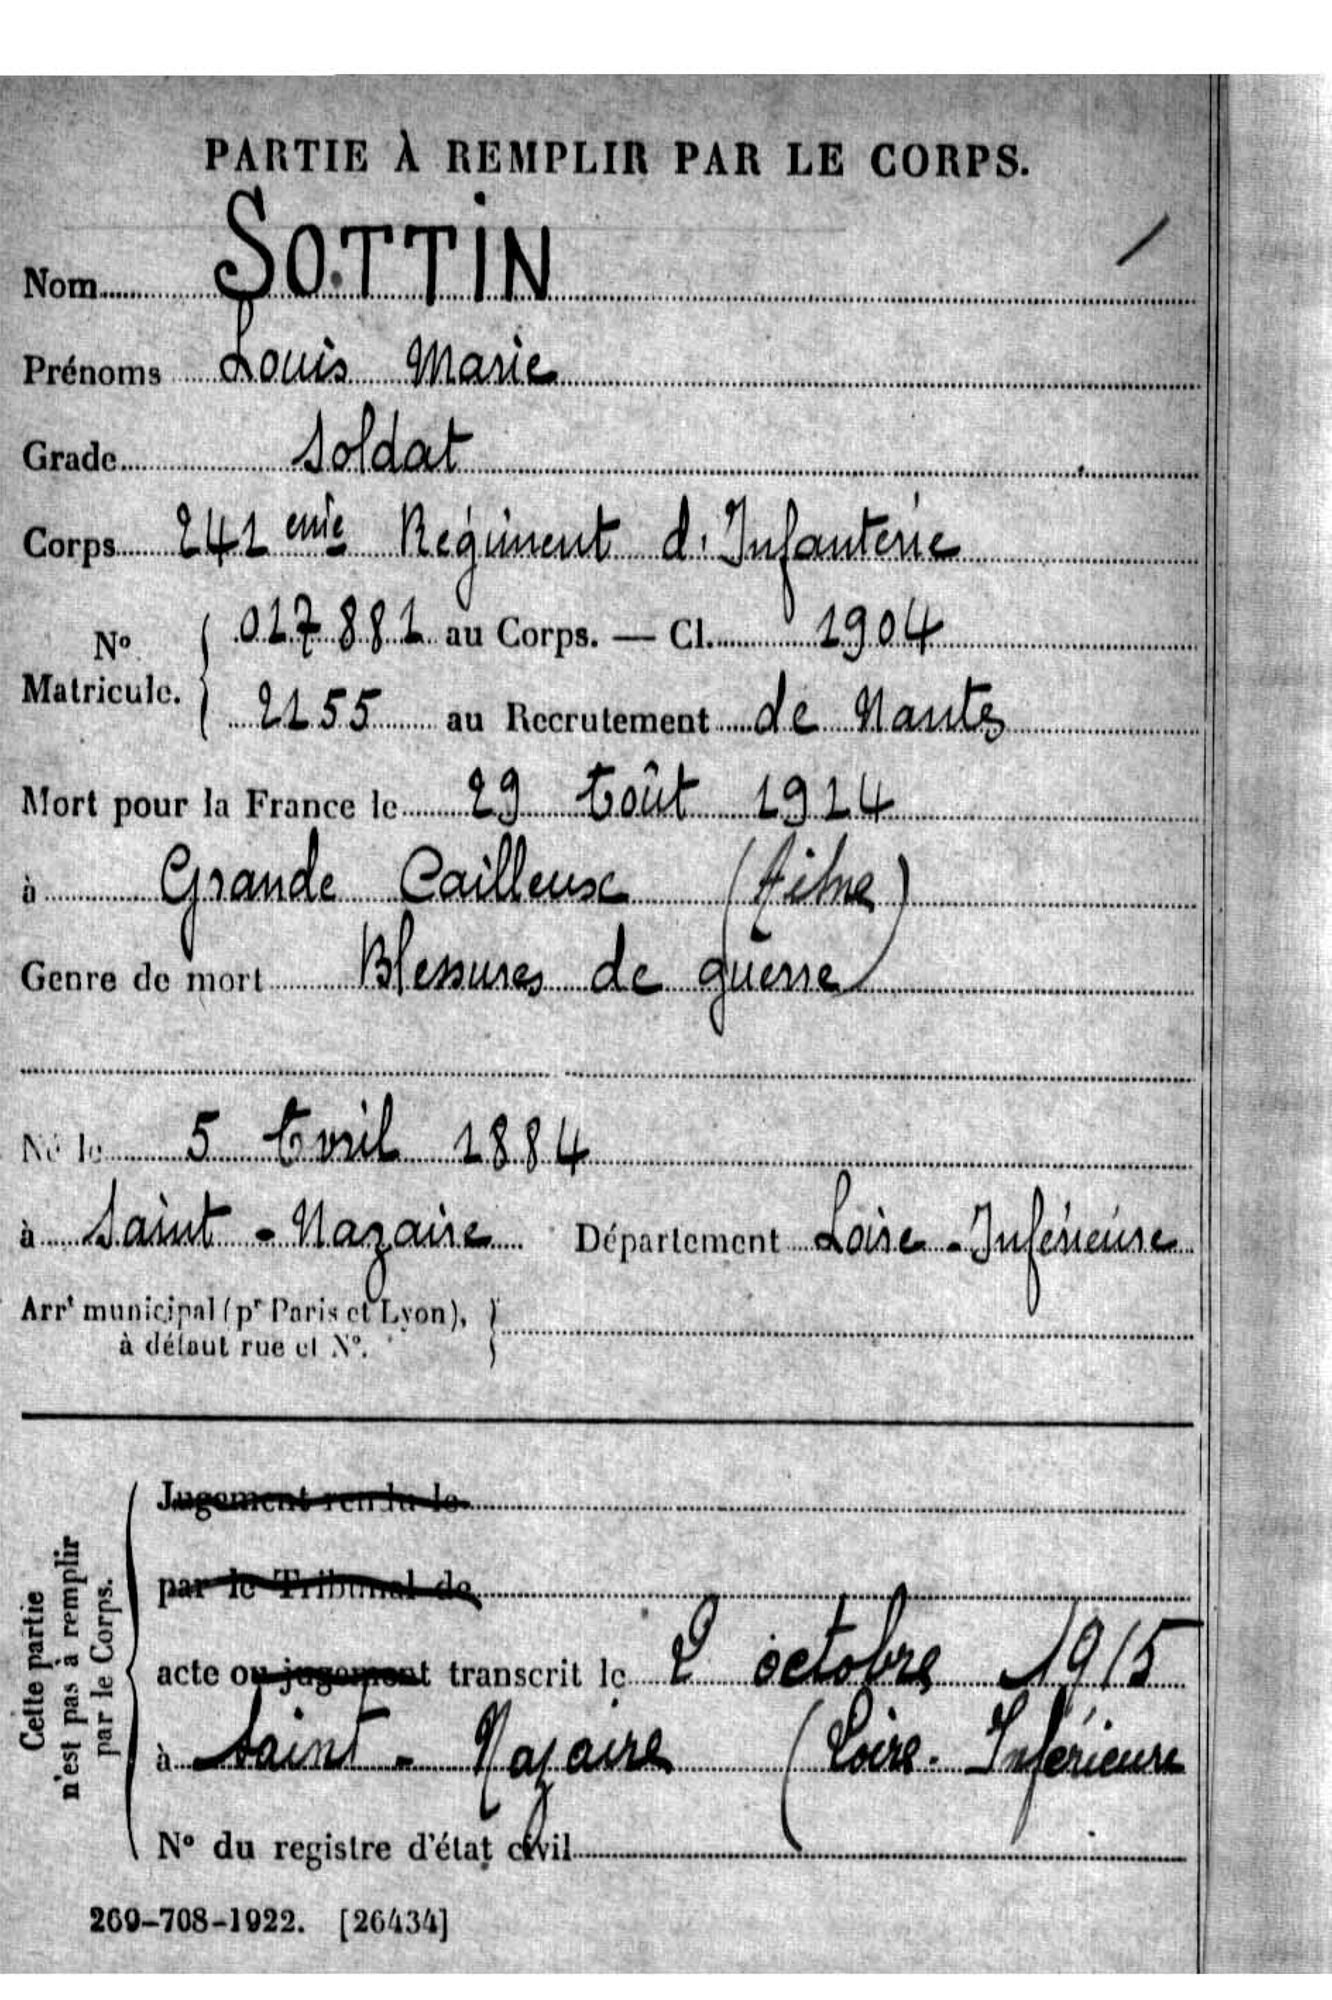 PARTIE À REMPLIR PAR LE CORPS.
Nom SOTTIN
Prénoms Louis Marie
Grade Soldat
Corps 241 emie Régiment d'Infanterie
No Matricule. { 017881 au Corps. — Cl. 1904
2155 au Recrutement de Nantes
Mort pour la France le 29 Août 1914
à Grande Cailleuse (Aisne)
Genre de mort Blessures de guerre
Né le 5 Avril 1884
à Saint-Nazaire Département Loire-Inférieure
Arrt municipal (pr Paris et Lyon), }
à défaut rue et No.
Cette partie
n'est pas à remplir
par le Corps.
Jugement rendu le
par le Tribunal de
acte ou jugement transcrit le 2 octobre 1915
à Saint-Nazaire (Loire-Inférieure
No du registre d'état civil
269-708-1922. [26434]